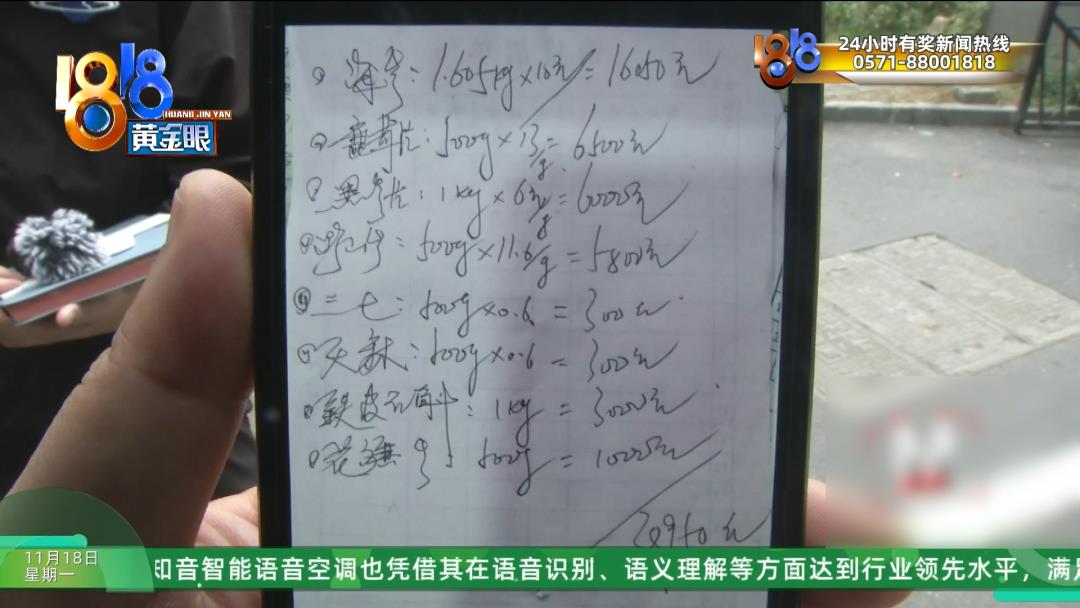 1818
HUANG JIN YAN
黄金眼
1818
24小时有奖新闻热线
0571-88001818
海参: 1.605kg×10元=16050元
500g×13/g=6500元
片: 1kg×6元/g=6000元
500g×11.6/g=5800元
三七: 500g×0.6=300元
天麻: 500g×0.6=300元
铁皮石斛: 1kg=3000元
花 500g=1000元
38950元
11月18日
星期一
知音智能语音空调也凭借其在语音识别、语义理解等方面达到行业领先水平，满足